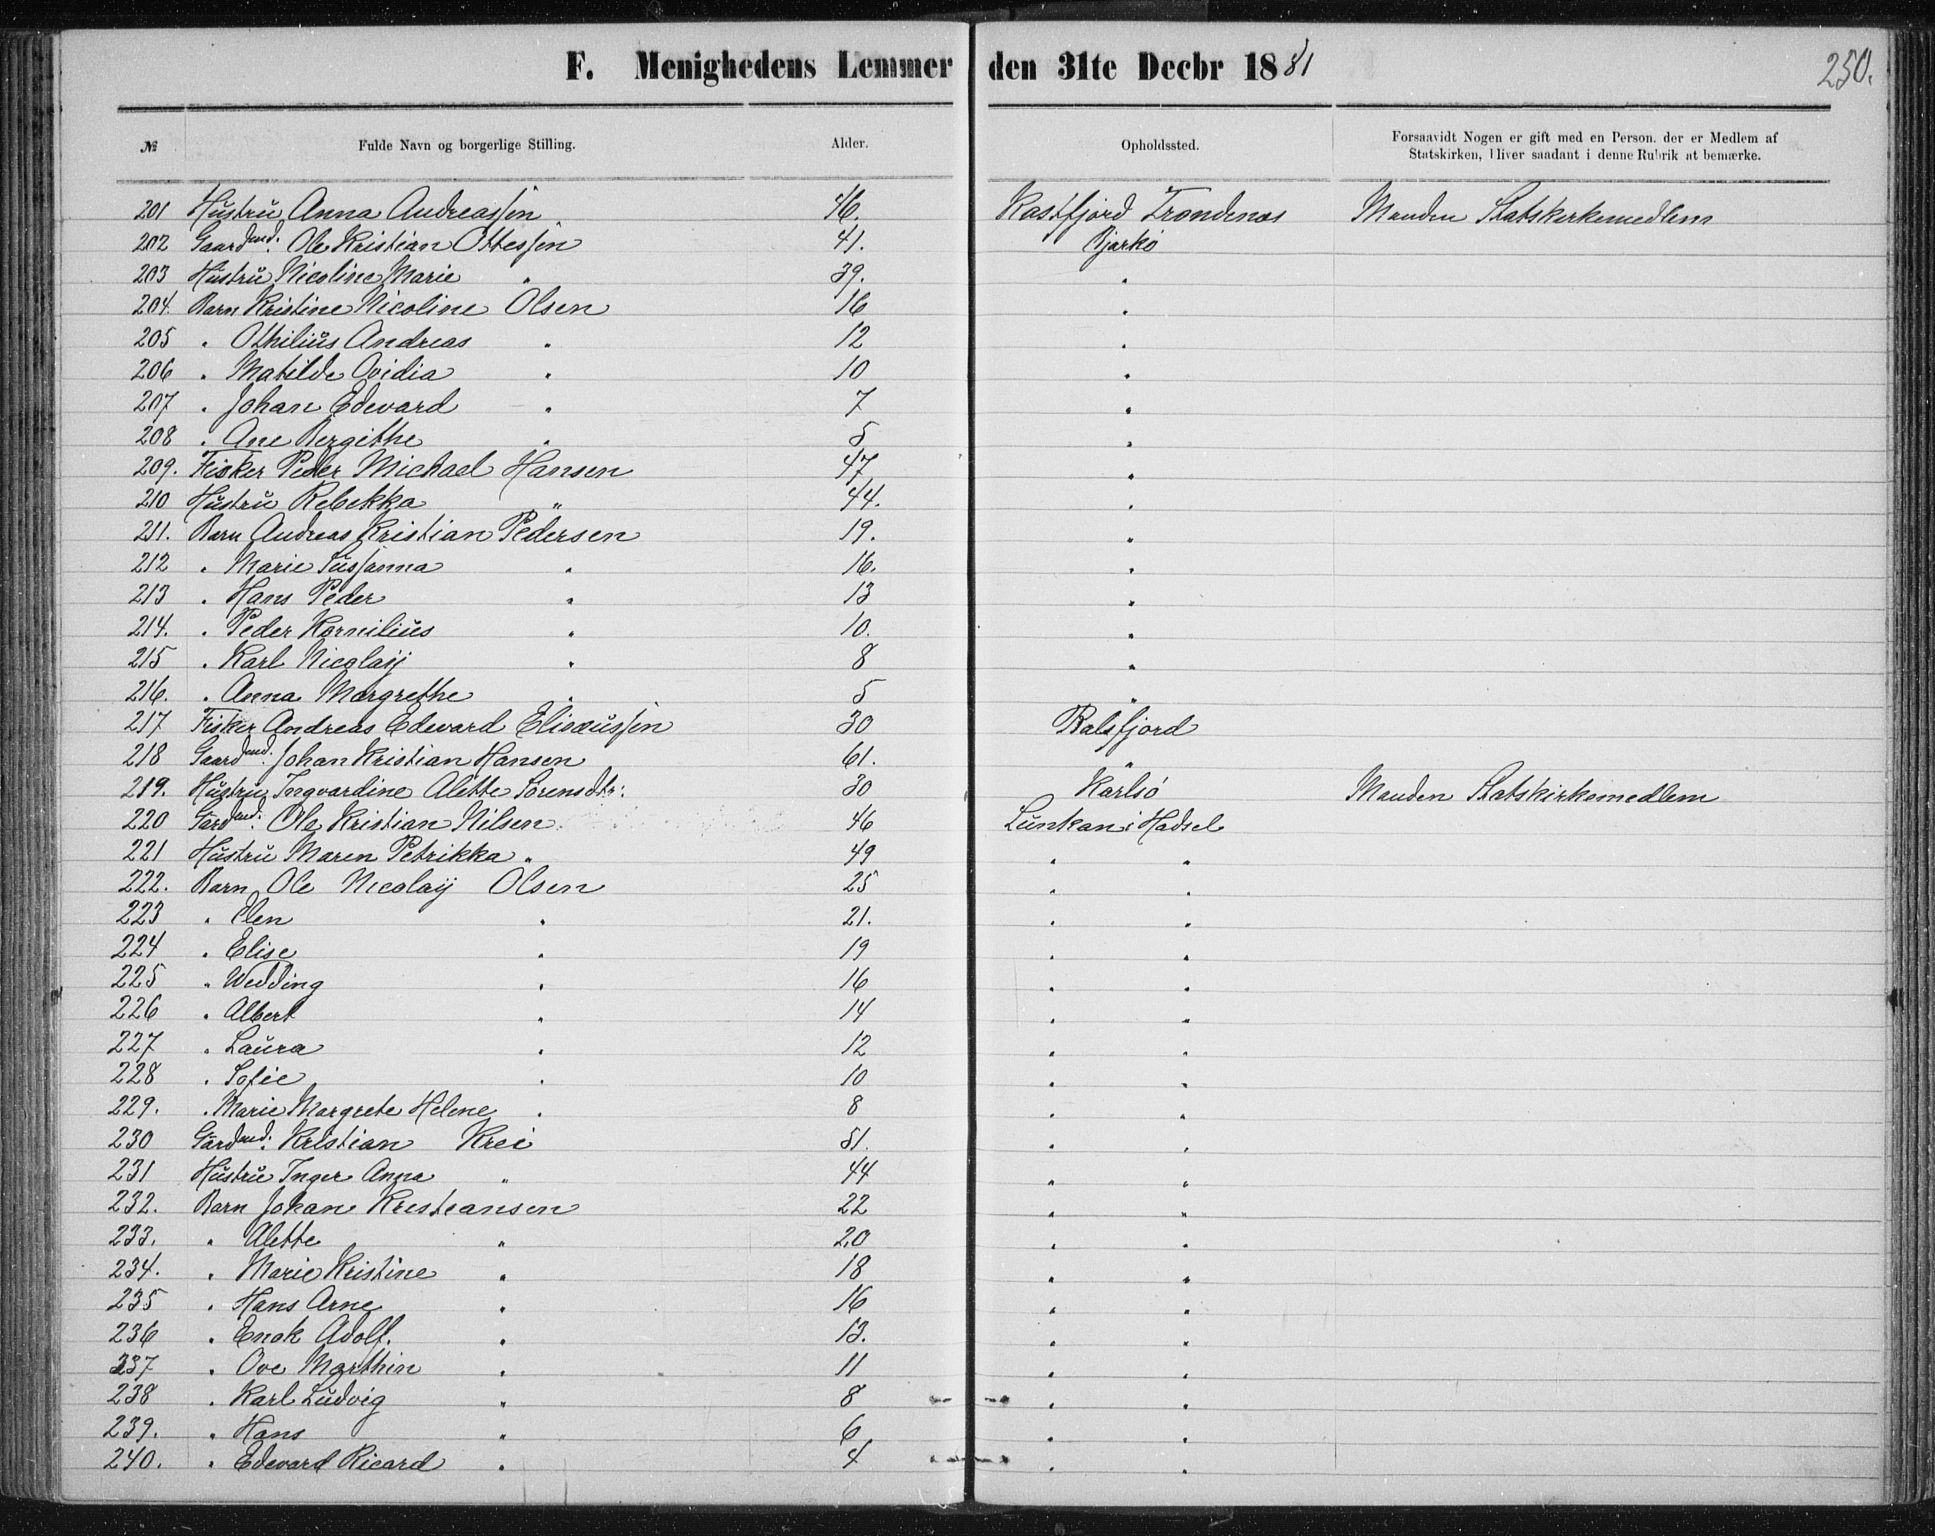 F. Menighedens Lemmer den 31te Decbr 1881
250.
№ Fulde Navn og borgerlige Stilling. Alder. Opholdssted. Forsaavidt Nogen er gift med en Person, der er Medlem af
Statskirken, bliver saadant i denne Rubrik at bemærke.
201 Hustru Anna Andreassen 46. Kastfjord Trondenæs Manden Statskirkemedlem
202 Gaardmd: Ole Kristian Ottessen 41. Bjarkö
203 Hustru Nicoline Marie " 39. "
204. Barn Kristine Nicoline Olsen 16 "
205 " Othilius Andreas " 12 "
206 " Matilde Ovidia " 10 "
207 " Johan Edevard " 7 "
208 " Ane Bergithe " 5 "
209. Fisker Peder Michael Hansen 47 "
210 Hustru Rebekka " 44. "
211. Barn Andreas Kristian Pedersen 19. "
212 " Marie Sussanna " 16. "
213 " Hans Peder " 13 "
214. " Peder Kornilius " 10. "
215 " Karl Nicolaij " 8 "
216. " Anna Margrethe " 5 "
217 Fisker Andreas Edevard Elisæussen 30 Balsfjord
218 Gaardmd: Johan Kristian Hansen 61. "
219. Hustru Ingvardine Alette Sörensdtr: 30 Karlsö Manden Statskirkemedlem
220 Gardmd: Ole Kristian Nilsen 46 Lunkan i Hadsel
221 Hustru Maren Petrikka " 49 " "
222. Barn Ole Nicolaij Olsen 25 " "
223 " Elen " 21. " "
224 " Elise " 19 " "
225 " Wedding " 16 " "
226 " Albert " 14 " "
227 " Laura " 12 " "
228 " Sofie " 10 " "
229. " Marie Margrete Helene " 8 " "
230 Gårdmd: Kristian Krei 51. " "
231 Hustru Inger Anna " 44 " "
232. Barn Johan Kristiansen 22 " "
233. " Alette " 20 " "
234. " Marie Kristine " 18 " "
235 " Hans Arne " 16 " "
236 " Enok Adolf. " 13. " "
237 " Ove Marthin " 11 " "
238 " Karl Ludvig " 8 " "
239. " Hans " 6 " "
240. " Edevard Ricard " 4 " "